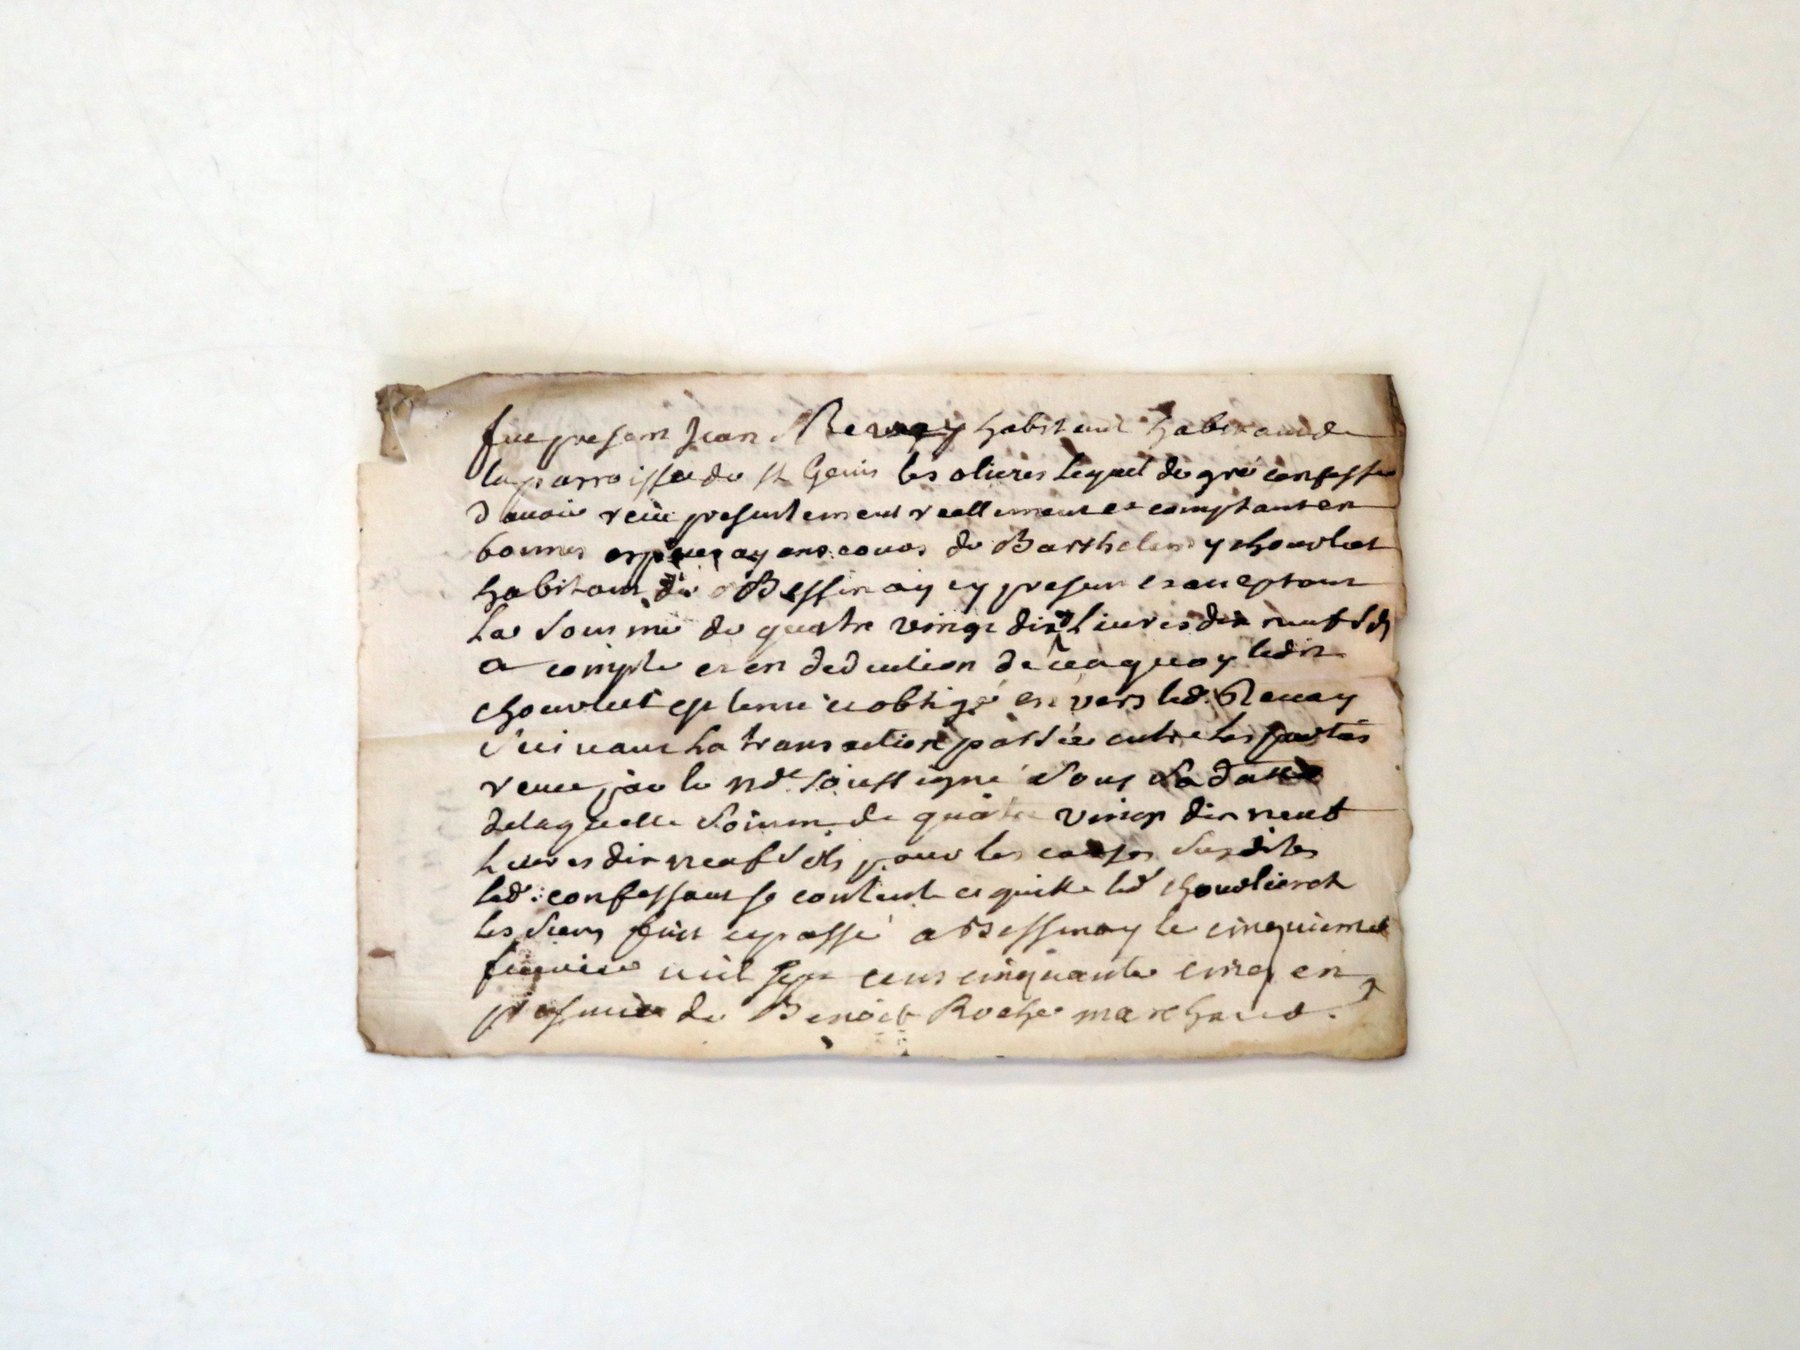 fut present Jean Revay habitant habitant de
la parroisse de st Genis les olieres lequel de gré confesse
d avoir reçu presentement reellement et comptant en
bonnes especes ayans cours de Barthelemy chouvlet
habitant de Bessenay cy present et acceptant
La somme de quatre vingt dix Livres dix neuf sols
a compte et en deduction de ce a quoy ledit
chouvlet est tenu et obligé en vers led. Revay
suivant La transaction passée entre les parties
receue par le nore soussigné sous sa datte
de laquelle somme de quatre vingt dix neuf
livres dix neuf sols pour les causes susdites
led. confessant se contente et quitte led
les siens fait et passé a Bessenay le cinquieme
fevrier mil sept cens cinquante cinq en
presence de Benoit Roche marchand.